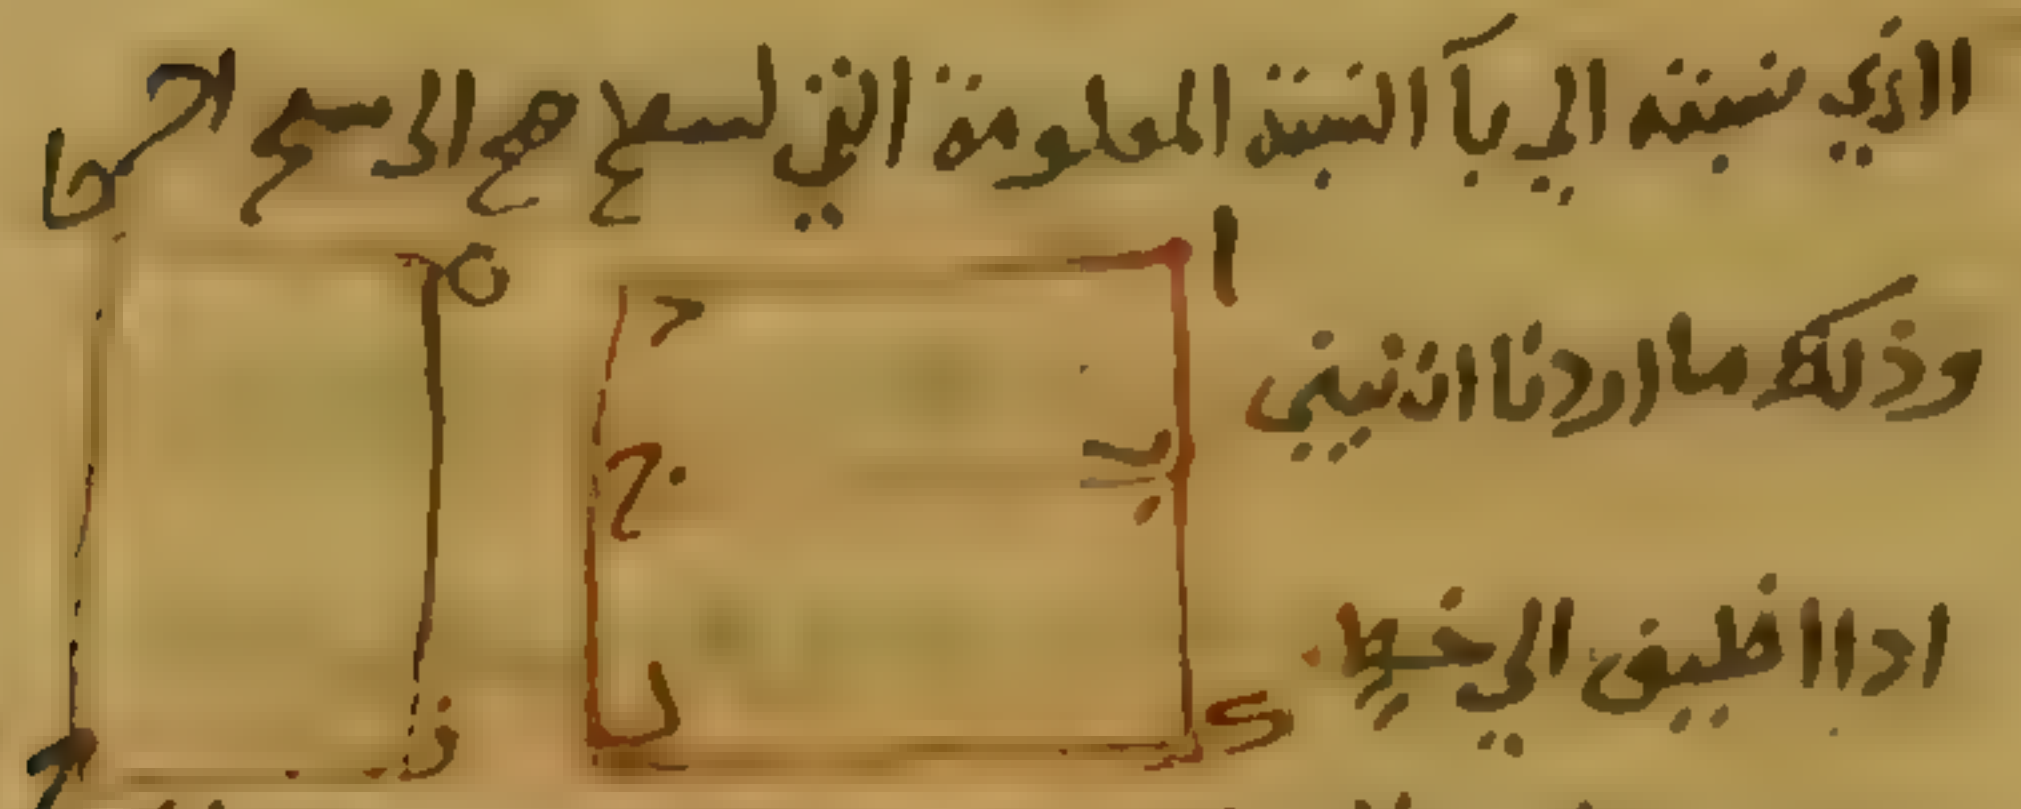 الذي نسبته الي بآ النسبة المعلومة التي لسطح هح الى سطح احـ
وذلك ما اردنا ان نبين
ا
ه
د
ب
ج
اذا اضيف الي خط
ل
ز
ح